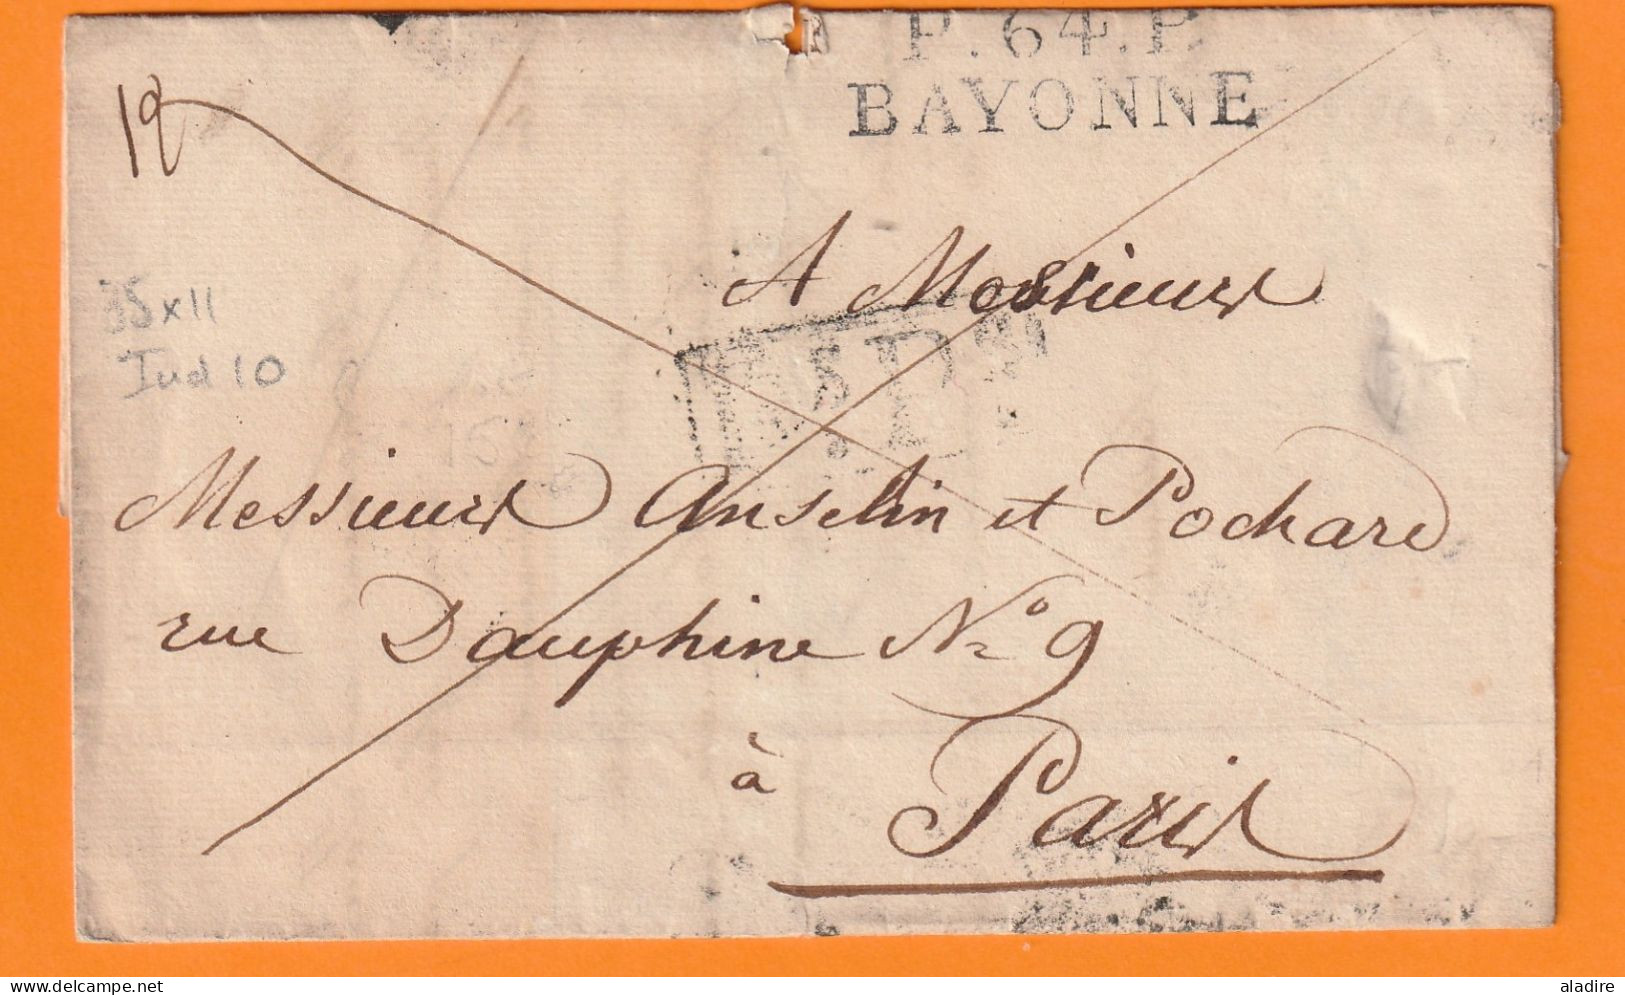 P.64.P.
BAYONNE
12
A Messieurs
35x11
Ind 10
Messieurs Anselin et Pochard
rue Dauphine N.° 9
à
Paris
aladire
www.delcampe.net